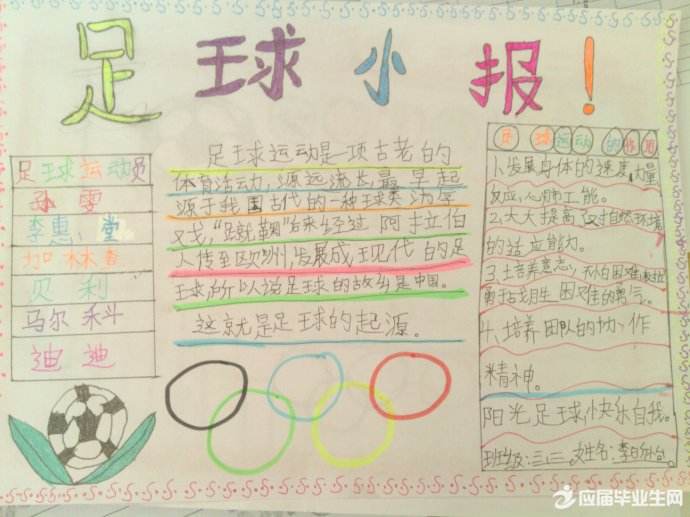 足球小报！
足球运动员
孙雯
李惠堂
加林查
贝利
马尔科斗
迪迪
足球运动是一项古老的
体育活动，源远流长。最早起
源于我国古代的一种球类游
戏"蹴鞠"后来经过阿拉伯
人传至欧洲，发展成现代的足
球，所以说足球的故乡是中国。
这就是足球的起源。
足球运动的作用
1.发展身体的速度、力量
反应，心肺功能。
2.大大提高
自然环境
的适应能力。
3.培养意志，不怕困难
勇于战胜困难的勇气。
4.培养团队的协作
精神。
阳光足球，快乐自我。
班级：三.三.姓名：李
应届毕业生网